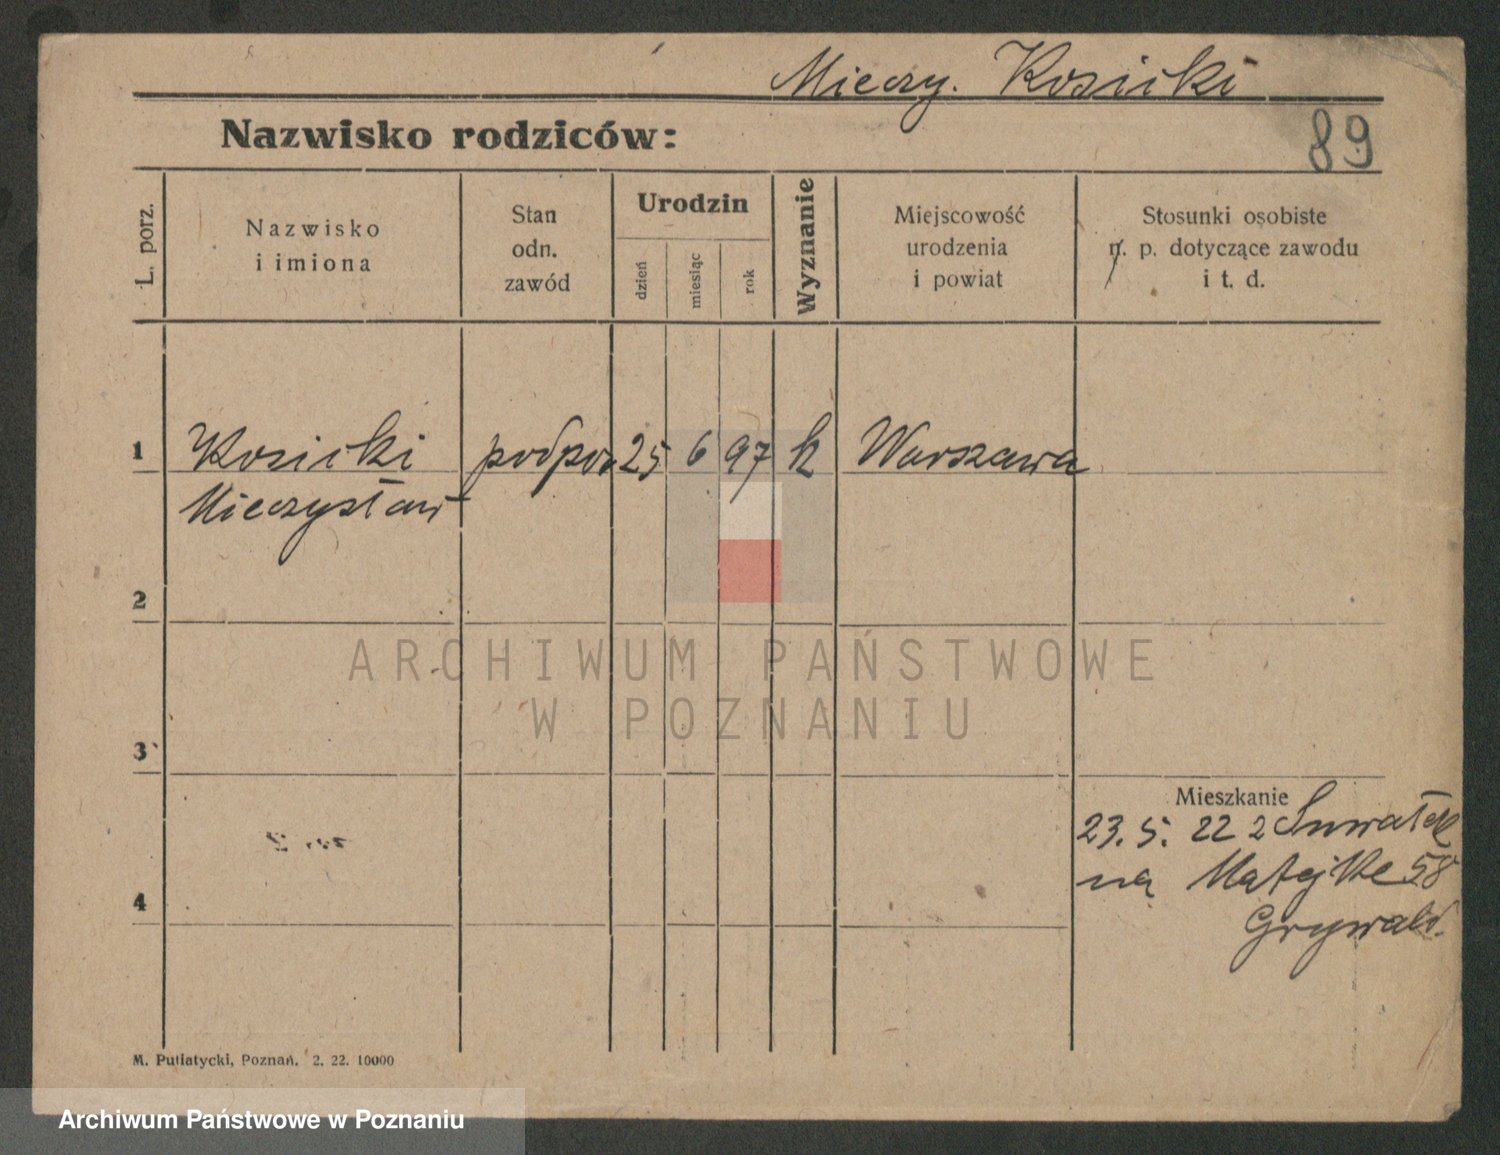 Mieczy. Kosicki
Nazwisko rodziców:
89
L. porz.
Nazwisko
i imiona
Stan
odn.
zawód
Urodzin
dzień
miesiąc
rok
Wyznanie
Miejscowość
urodzenia
i powiat
Stosunki osobiste
n. p. dotyczące zawodu
i t. d.
1
Kosicki podpor 25 6 97 k Warszawa
Mieczysław
2
ARCHIWUM PAŃSTWOWE
W POZNANIU
3
Mieszkanie
23. 5. 22 z Suwałek
na Matejke 58
4
Grywald.
M. Putiatycki, Poznań. 2. 22. 10000
Archiwum Państwowe w Poznaniu